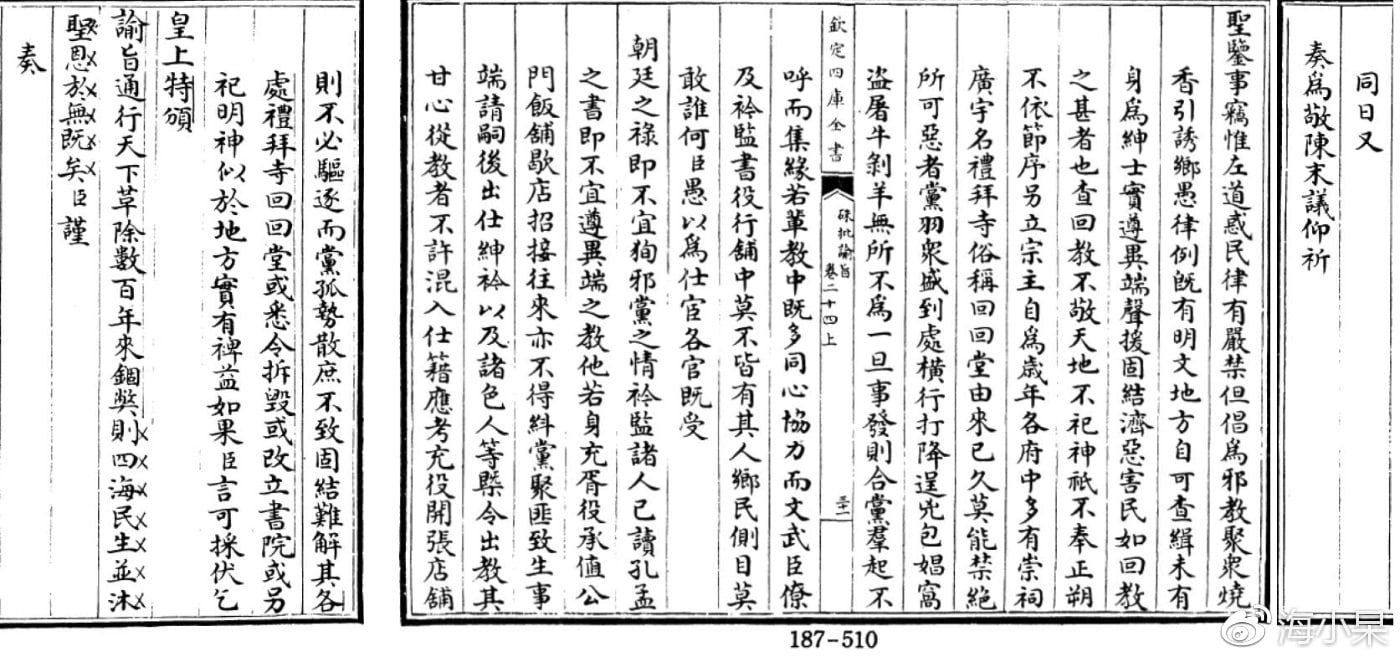 同日又
奏爲敬陳末議仰祈
聖鑒事竊惟左道惑民律有嚴禁但倡爲邪教聚衆燒
香引誘鄉愚律例旣有明文地方自可查緝未有
身爲紳士實遵異端聲援固結濟惡害民如回教
之甚者也查回教不敬天地不祀神祇不奉正朔
不依節序另立宗主自爲歲年各府中多有崇祠
廣宇名禮拜寺俗稱回回堂由來已久莫能禁絕
所可惡者黨羽衆盛到處橫行打降逞兇包娼窩
盜屠牛剝羊無所不爲一旦事發則合黨羣起不
欽定四庫全書
硃批諭旨
卷二十四上
三十一
呼而集緣若輩教中旣多同心協力而文武臣僚
及衿監書役行舖中莫不皆有其人鄉民側目莫
敢誰何臣愚以爲仕宦各官旣受
朝廷之祿即不宜狥邪黨之情衿監諸人已讀孔孟
之書即不宜遵異端之教他若身充胥役承值公
門飯舖歇店招接往來亦不得糾黨聚匪致生事
端請嗣後出仕紳衿以及諸色人等槩令出教其
甘心從教者不許混入仕籍應考充役開張店舖
則不必驅逐而黨孤勢散庶不致固結難解其各
處禮拜寺回回堂或悉令拆毀或改立書院或另
祀明神似於地方實有裨益如果臣言可採伏乞
皇上特頒
諭旨通行天下草除數百年來錮獘則四海民生並沐
聖恩於無旣矣臣謹
奏
187-510
海小杲